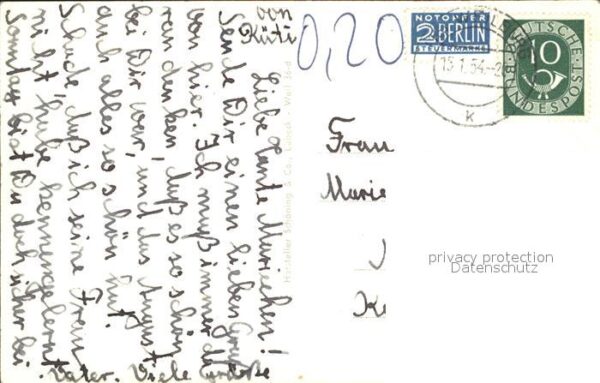 Liebe Tante Mariechen!
Sende Dir einen lieben Gruß
von hier. Ich muß immer da-
ran denken, daß es so schön
bei Dir war, und das August
auch alles so schön hat.
Schade, daß ich seine Frau
nicht habe kennengelernt.
Sonntag bist Du doch sicher bei
Vater. Viele Grüße
von
Hersteller Schöning & Co., Lübeck
0,20
NOTOPFER
2 BERLIN
STEUERMARKE
15.1.54
k
DEUTSCHE
BUNDESPOST
10
Frau
Marie
K
privacy protection
Datenschutz